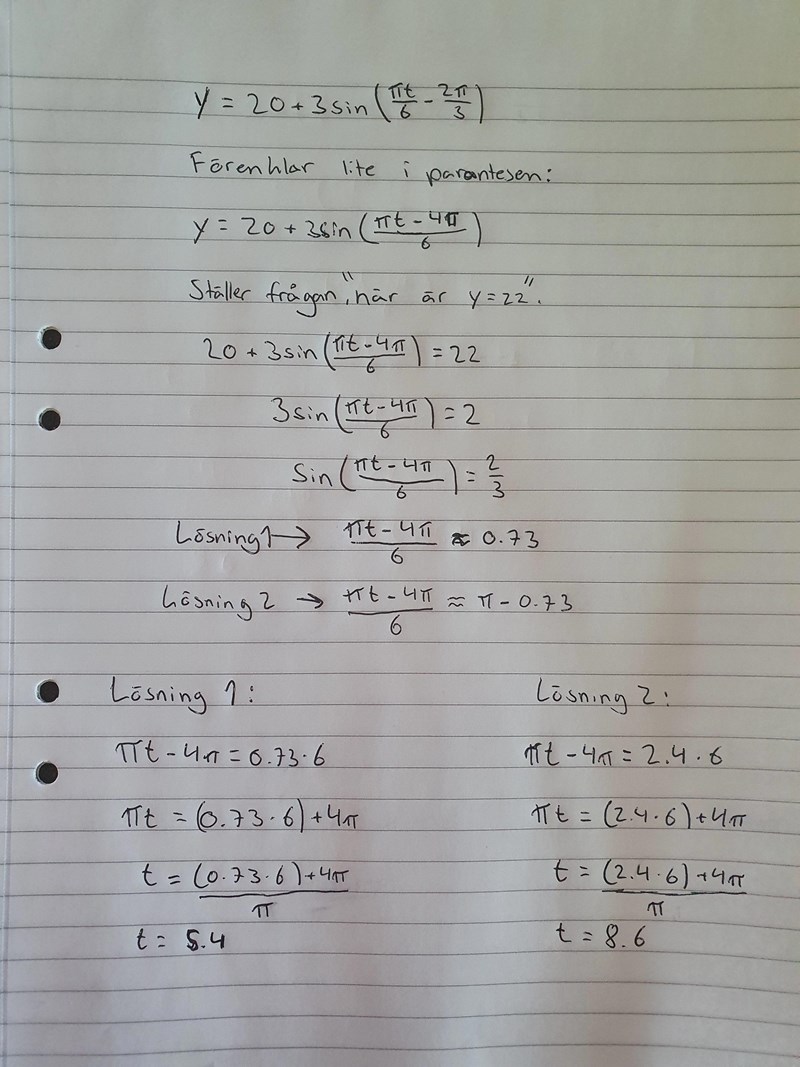 y = 20 + 3sin(πt/6 - 2π/3)
Förenklar lite i parantesen:
y = 20 + 3sin((πt - 4π)/6)
Ställer frågan, "när är y=22".
20 + 3sin((πt - 4π)/6) = 22
3sin((πt - 4π)/6) = 2
Sin((πt - 4π)/6) = 2/3
Lösning 1 → (πt - 4π)/6 ≈ 0.73
Lösning 2 → (πt - 4π)/6 ≈ π - 0.73
Lösning 1:
πt - 4π = 0.73·6
πt = (0.73·6)+4π
t = ((0.73·6)+4π)/π
t = 5.4
Lösning 2:
πt - 4π = 2.4·6
πt = (2.4·6)+4π
t = ((2.4·6)+4π)/π
t = 8.6